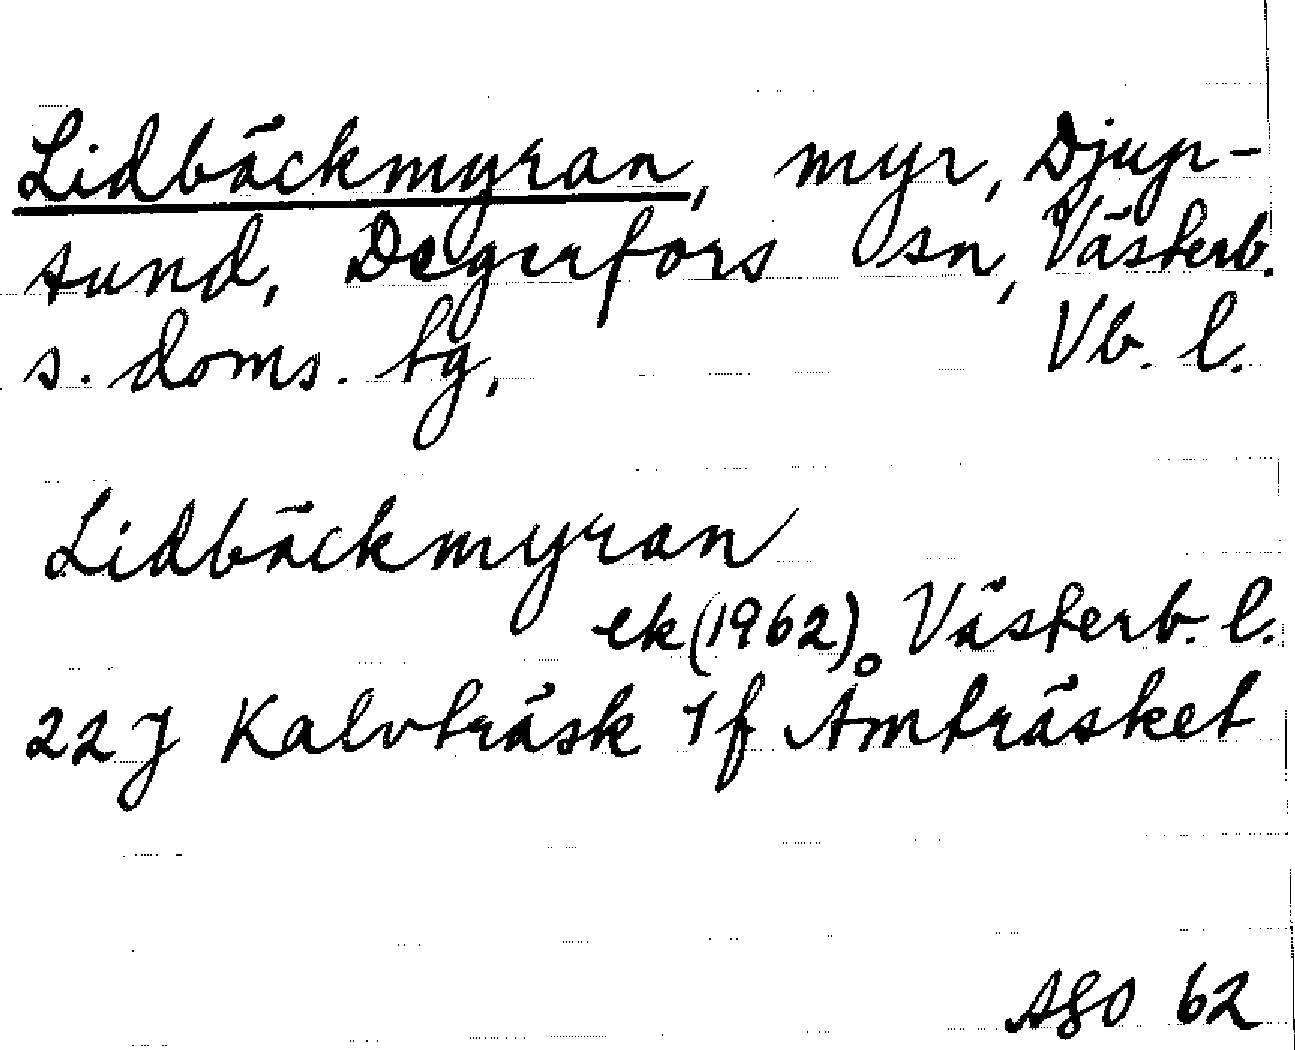 Lidbäckmyran, myr, Djup-
sund, Degerfors sn, Västerb.
s. doms. tg, Vb. l.
Lidbäckmyran
ek (1962), Västerb. l.
22 J Kalvträsk 7f Åmträsket
ÅGO 62